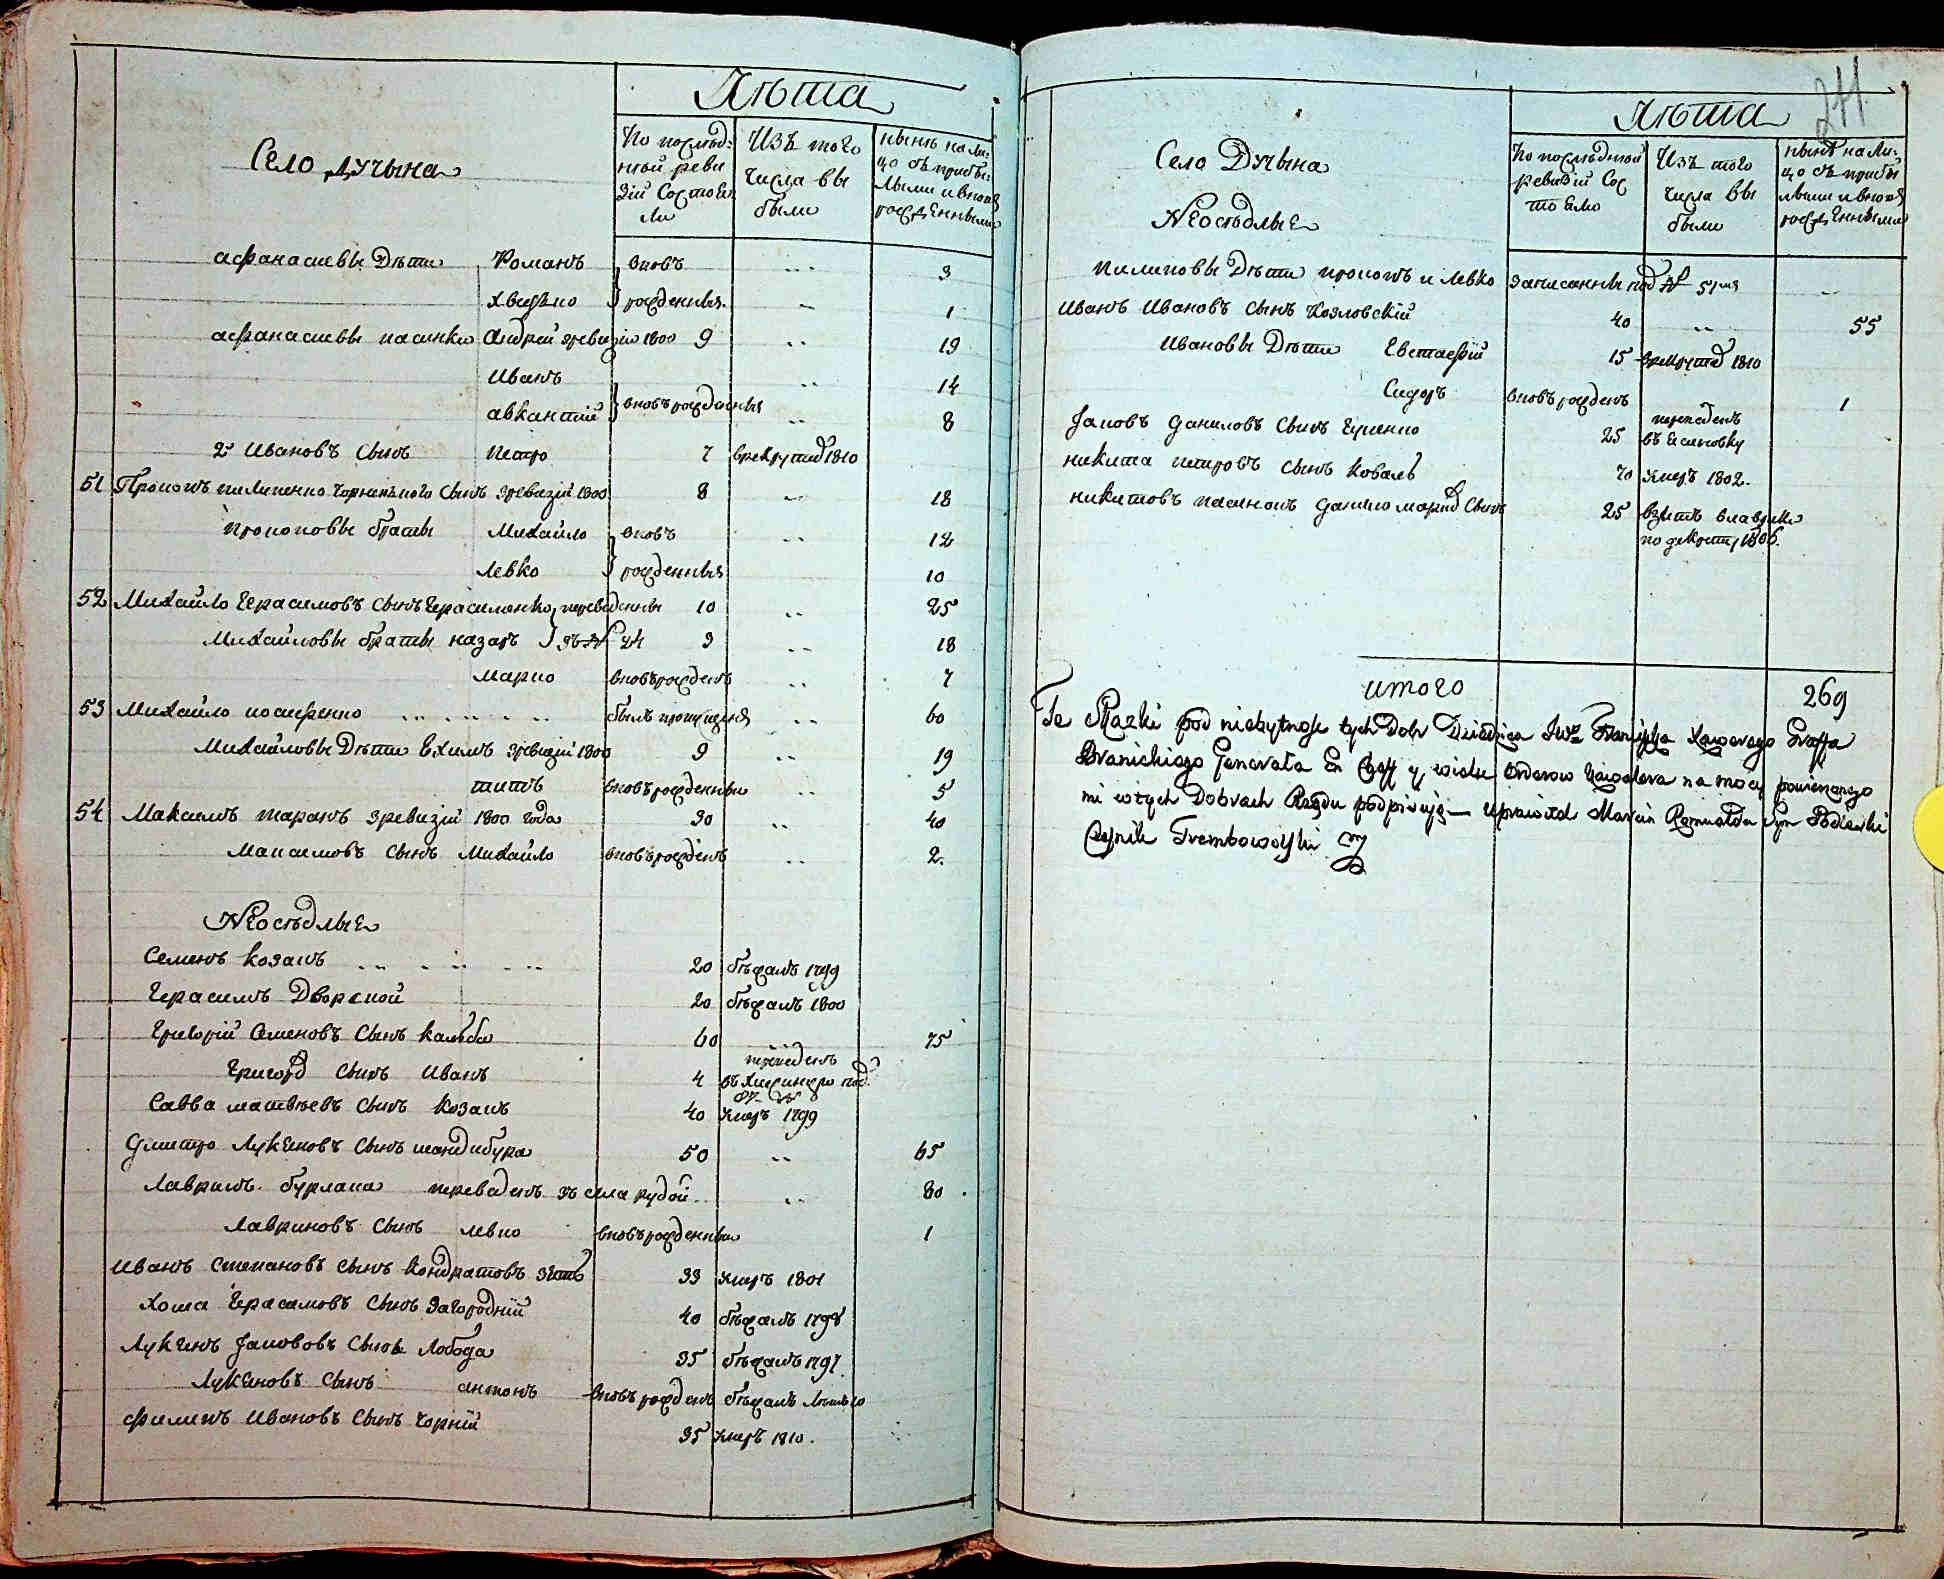 Лѣта
Село Дучына
По послѣд-
ней реви
зіи Состоя
ли
Изъ того
числа вы
были
нынѣ на ли-
цо съ прибы-
лыми и вновь
рожденными
афанасиевы Дѣти Романъ вновь 3
Хведько рожденныя 1
афанасиевы пасинки Андрей зревизіи 1800 9 19
Иванъ 14
вновърожденныя 8
2й Ивановъ Сынъ Петро 7 врекруты 1810
51 Прокопъ пилипенко чорненького Сынъ зревизіи 1800 8 18
прокоповы браты Михайло вновъ 12
Левко рожденныя 10
52 Михайло Герасимовъ Сынъ Герасименко переведены 10 25
Михайловы браты назаръ зъ № 24 9 18
Марко вновърожденъ 7
53 Михайло иосиенко былъ пропущенъ 60
Михайловы Дѣти Ехимъ зревизіи 1800 9 19
титъ вновърожденный 5
54 Максимъ таранъ зревизіи 1800 года 30 40
Максимовъ Сынъ Михайло вновърожденъ 2.
Неосѣдлые
Семенъ козакъ 20 бѣжалъ 1799
Герасимъ Дворской 20 бѣжалъ 1800
Григорій Семеновъ Сынъ кальба 60 75
переведенъ
Григор. Сынъ Иванъ 4 въ под.
Савва матвѣевъ Сынъ козакъ 40 умеръ 1799
Дмитро Лукяновъ Сынъ шандибура 50 65
Лавринъ бурлака переведенъ зъ села рудой 80
Лавриновъ Сынъ левко вновърожденный 1
Иванъ Степановъ Сынъ Кондратовъ зять 33 умеръ 1801
Хома Герасимовъ Сынъ Загородній 40 бѣжалъ 1798
Лукянъ Јакововъ Сынъ Лобода 35 бѣжалъ 1797
Лукяновъ Сынъ антонъ вновърожденъ бѣжалъ
филипъ Ивановъ Сынъ Чорній 35 умеръ 1810.
241
Лѣта
Село Дучына
По послѣдней
ревизіи Сос
тояло
Изъ того
числа вы
были
нынѣ на ли-
цо съ прибы
лыми и вновь
рожденными
Неосѣдлые
пилиповы Дѣти прокопъ и Левко записанны под № 51мъ
Иванъ Ивановъ Сынъ Козловскій 40 55
Ивановы Дѣти Евстафій 15 врекруты 1810
Сидоръ вновърожденъ 1
переведенъ
Јаковъ Даниловъ Сынъ Гуменко 25 въ Есиповку
никита петровъ Сынъ коваль 70 умеръ 1802.
никитовъ пасинокъ Данило Сынъ 25 взятъ
1806.
итого 269
Te Skazki pod niebytność tych Dobr Dziedzica Jwo Franciszka Xawerego Graffa
Branickiego Generała En Cheff y wielu Orderow Kawalera na mocy powierzonego
mi w tych Dobrach Rządu podpisuję — Marcin Romualda Syn
Trembowolski